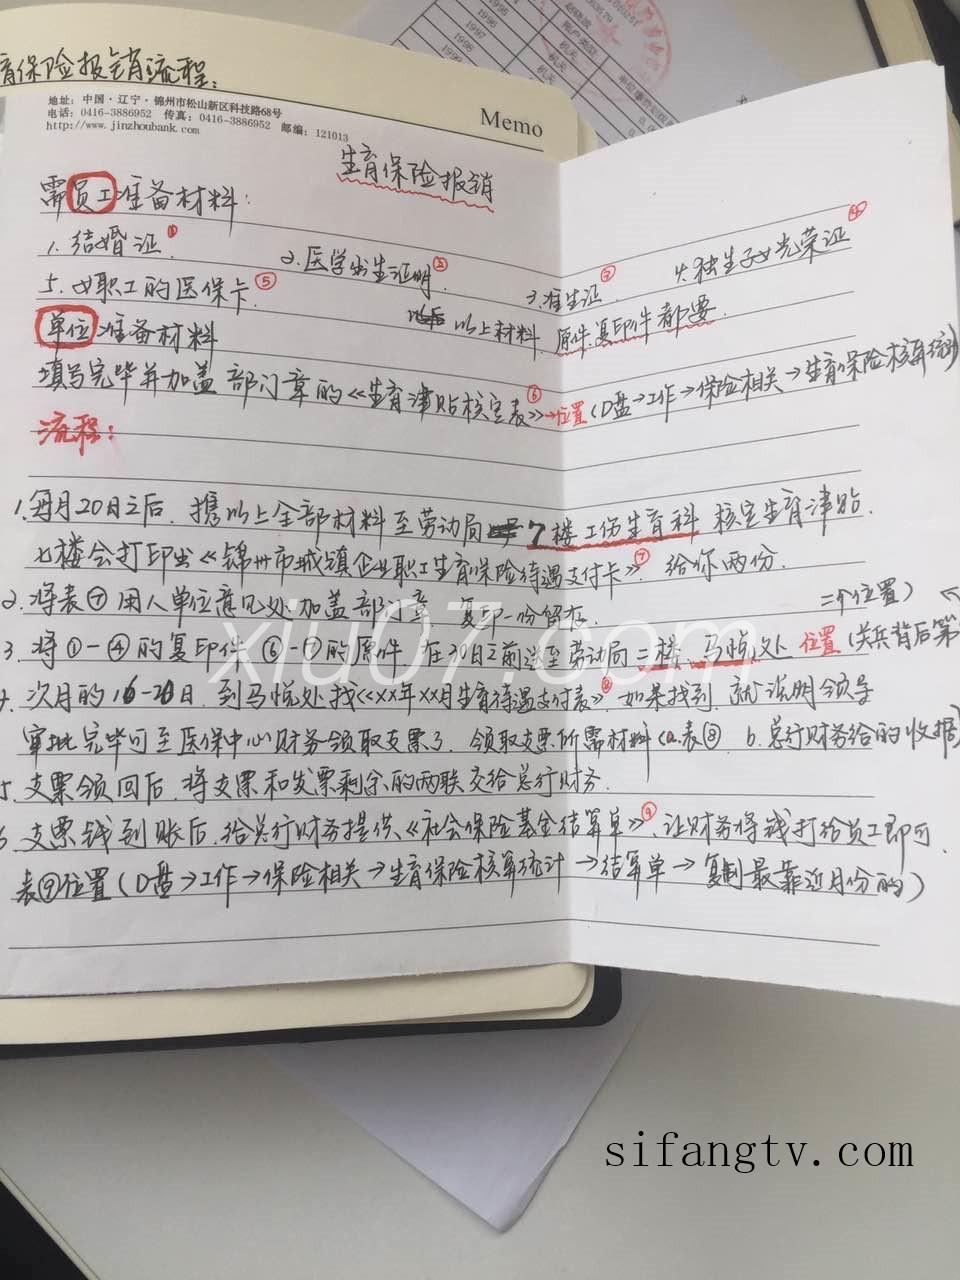 育保险报销流程:
地址：中国·辽宁·锦州市松山新区科技路68号
电话：0416-3886952 传真：0416-3886952 邮编：121013
http://www.jinzhoubank.com
Memo
生育保险报销
需员工准备材料:
1. 结婚证① 2. 医学出生证明② 3. 准生证③ 4. 独生子女光荣证④
5. 女职工的医保卡⑤ 以上材料 原件、复印件都要
单位准备材料
填写完毕并加盖部门章的《生育津贴核定表》⑥→位置(D盘→工作→保险相关→生育保险核算统计)
流程:
1. 每月20日之后, 携以上全部材料至劳动局 7楼工伤生育科 核定生育津贴.
七楼会打印出《锦州市城镇企业职工生育保险待遇支付卡》⑦ 给你两份.
2. 将表⑦用人单位意见处加盖部门章, 复印一份留存.
二个位置)
3. 将①-④的复印件 ⑥-⑦的原件 在30日之前送至劳动局二楼 马悦处 位置(关兵背后第
4. 次月的16-20日, 到马悦处找《XX年XX月生育待遇支付表》⑧, 如果找到, 就说明领导
审批完毕可至医保中心财务领取支票了. 领取支票所需材料(a.表⑧ b.总行财务给的收据)
5. 支票领回后, 将支票和发票剩余的两联交给总行财务.
6. 支票钱到账后, 给总行财务提供《社会保险基金结算单》⑨, 让财务将钱打给员工即可.
表⑨位置(D盘→工作→保险相关→生育保险核算统计→结算单→复制最靠近月份的)
xiu07.com
sifangtv.com